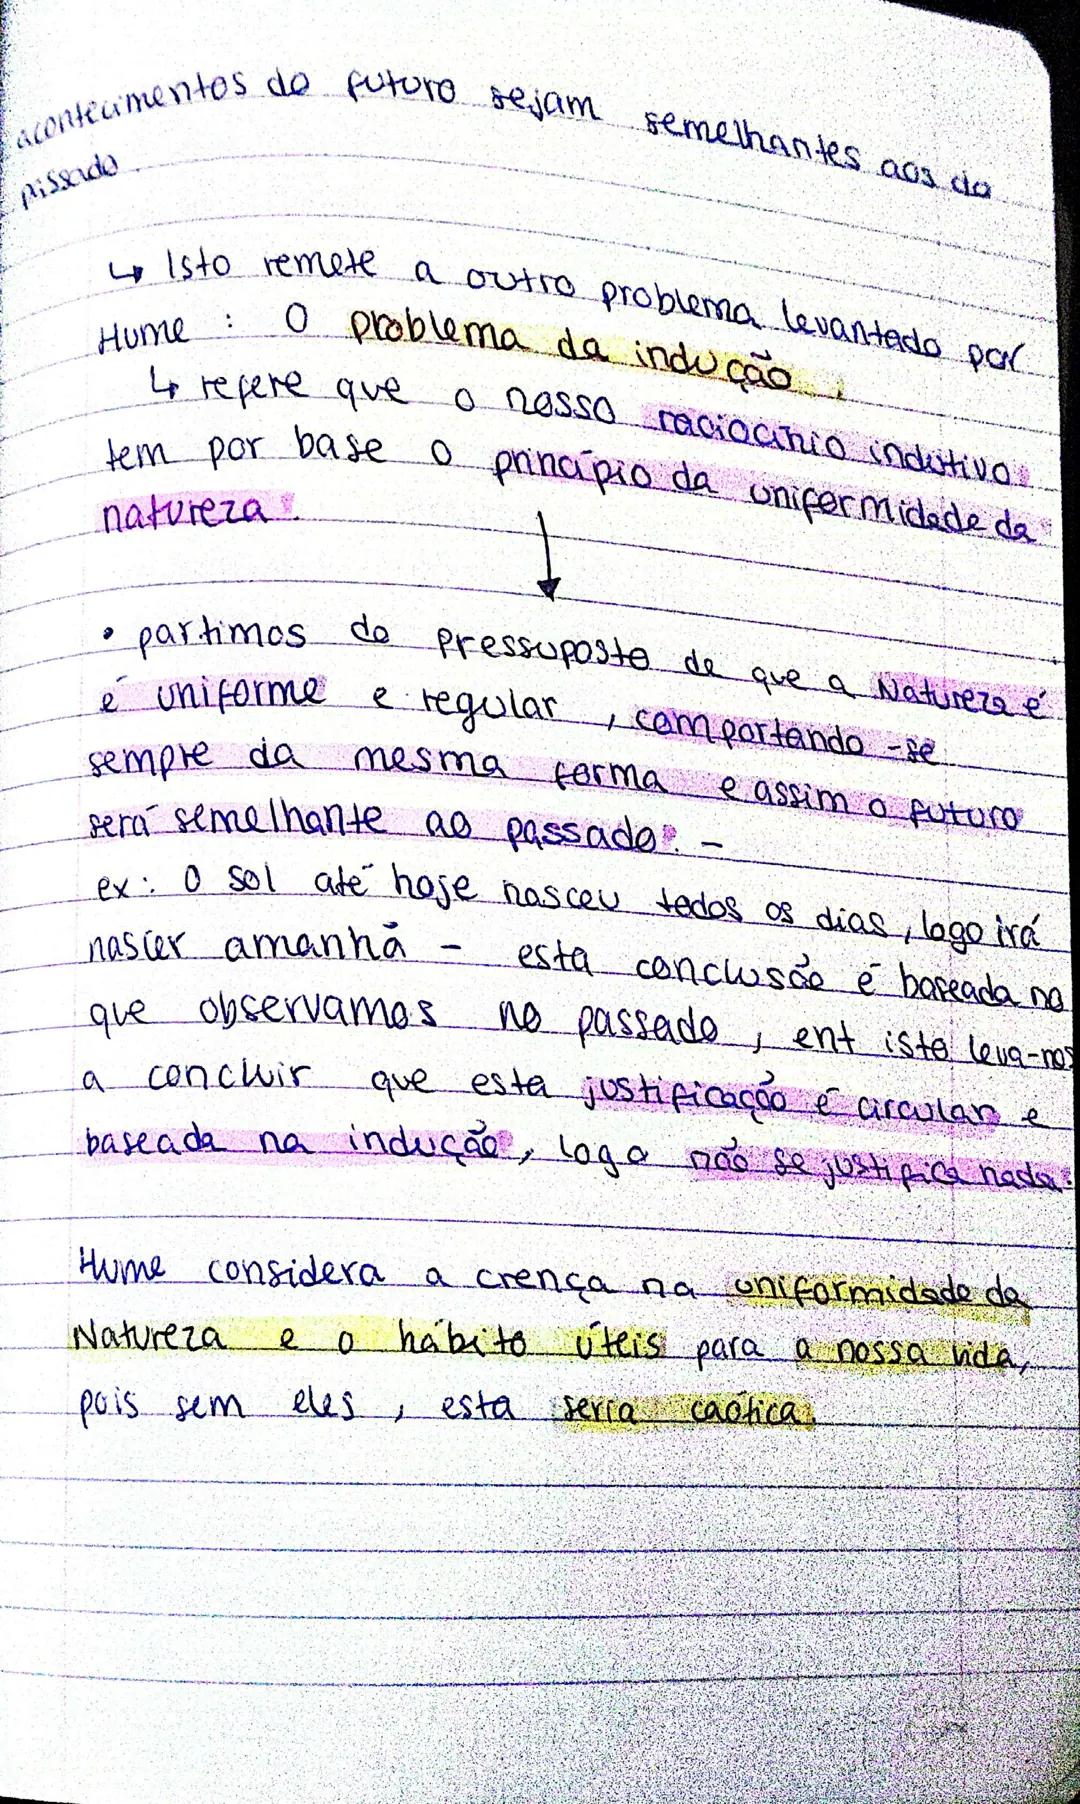 acontecimentos do futuro sejam semelhantes aos do
passado.
↳ Isto remete a outro problema levantado por
Hume : O problema da indução.
↳ refere que o nosso raciocínio indutivo
tem por base o princípio da uniformidade da
natureza.
↓
• partimos do pressuposto de que a Natureza é
é uniforme e regular, comportando-se
sempre da mesma forma e assim o futuro
será semelhante ao passado. -
ex: O sol até hoje nasceu todos os dias, logo irá
nascer amanhã - esta conclusão é baseada no
que observamos no passado, ent isto leva-nos
a concluir que esta justificação é circular e
baseada na indução, logo não se justifica nada.
Hume considera a crença na uniformidade da
Natureza e o hábito úteis para a nossa vida,
pois sem eles, esta seria caótica.